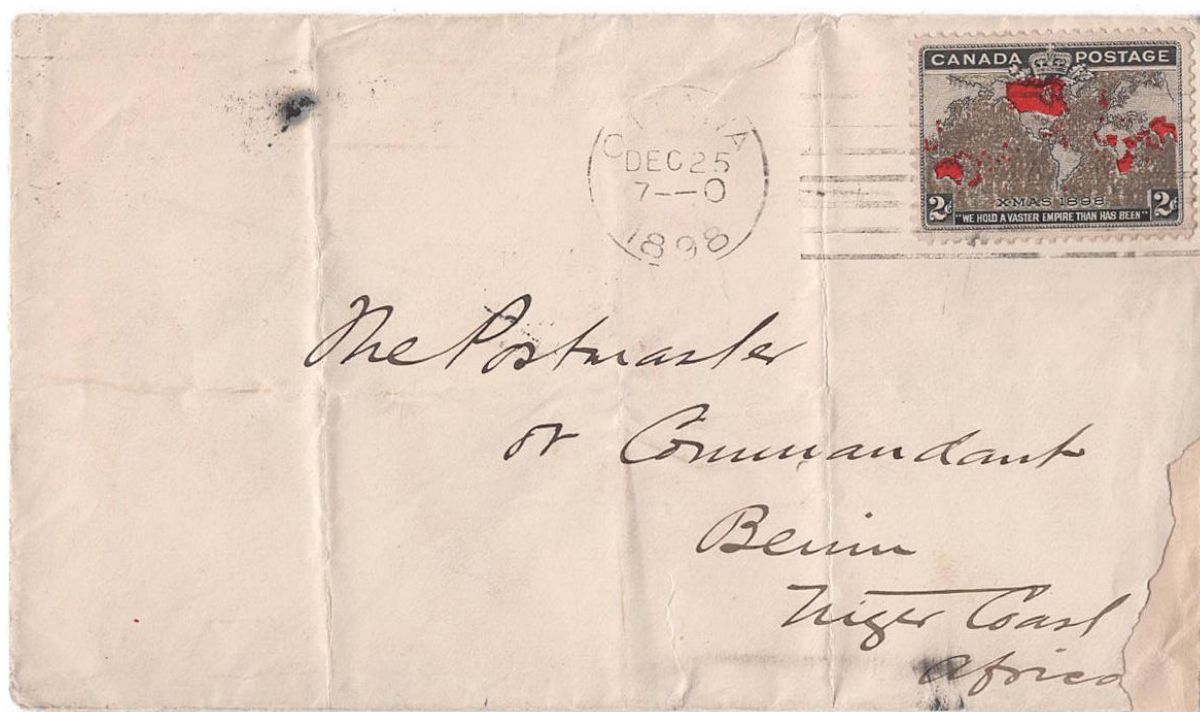 CANADA POSTAGE
XMAS 1898
2c 2c
"WE HOLD A VASTER EMPIRE THAN HAS BEEN"
OTTAWA
DEC 25
7—0
1898
The Postmaster
or Commandant
Benin
Niger Coast
Africa